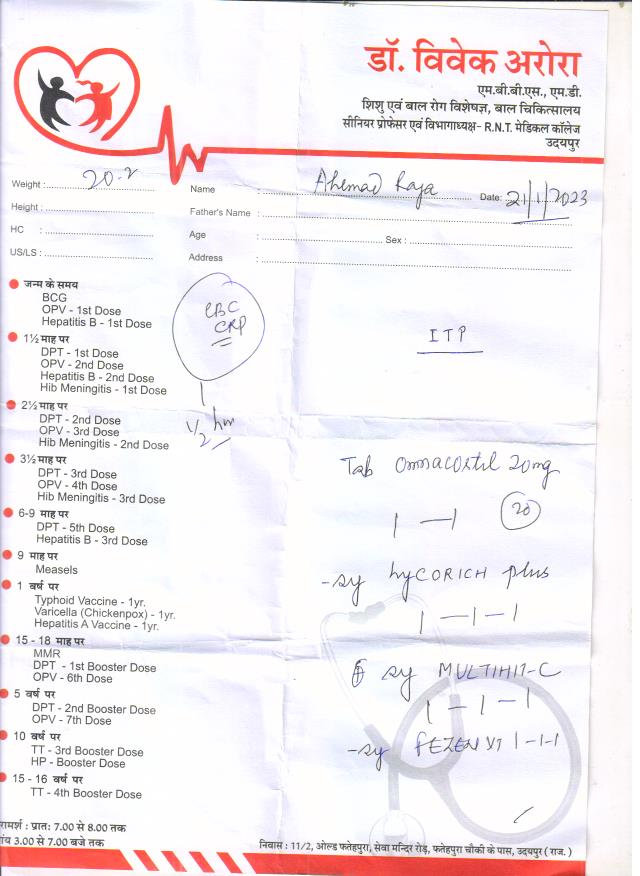 डॉ. विवेक अरोरा
एम.बी.बी.एस., एम.डी.
शिशु एवं बाल रोग विशेषज्ञ, बाल चिकित्सालय
सीनियर प्रोफेसर एवं विभागाध्यक्ष- R.N.T. मेडिकल कॉलेज
उदयपुर
Weight : 20.2 Name : Ahemad Raja Date: 21/1/2023
Height : Father's Name :
HC : Age : Sex :
US/LS : Address :
जन्म के समय
BCG
OPV - 1st Dose
Hepatitis B - 1st Dose
1½ माह पर
DPT - 1st Dose
OPV - 2nd Dose
Hepatitis B - 2nd Dose
Hib Meningitis - 1st Dose
2½ माह पर
DPT - 2nd Dose
OPV - 3rd Dose
Hib Meningitis - 2nd Dose
3½ माह पर
DPT - 3rd Dose
OPV - 4th Dose
Hib Meningitis - 3rd Dose
6-9 माह पर
DPT - 5th Dose
Hepatitis B - 3rd Dose
9 माह पर
Measels
1 वर्ष पर
Typhoid Vaccine - 1yr.
Varicella (Chickenpox) - 1yr.
Hepatitis A Vaccine - 1yr.
15 - 18 माह पर
MMR
DPT - 1st Booster Dose
OPV - 6th Dose
5 वर्ष पर
DPT - 2nd Booster Dose
OPV - 7th Dose
10 वर्ष पर
TT - 3rd Booster Dose
HP - Booster Dose
15 - 16 वर्ष पर
TT - 4th Booster Dose
CBC
CRP
1/2 hm
ITP
Tab Omnacortil 20mg
1 — 1 20
- sy hyCORICH plus
1 - 1 - 1
sy MULTIHIT-C
1 - 1 - 1
- sy FEZEN XT 1-1-1
रामर्श : प्रात: 7.00 से 8.00 तक
ांय 3.00 से 7.00 बजे तक
निवास : 11/2, ओल्ड फतेहपुरा, सेवा मन्दिर रोड़, फतेहपुरा चौकी के पास, उदयपुर ( राज. )